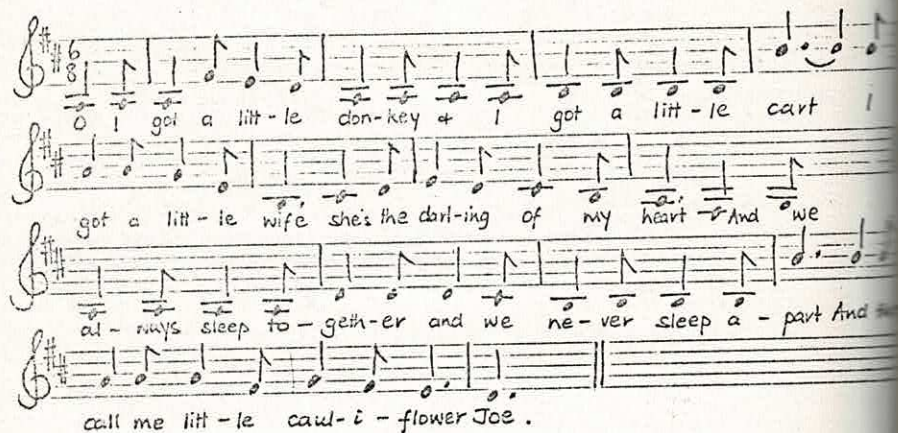 6
8
O I got a litt-le don-key & I got a litt-le cart I
got a litt-le wife, she's the darl-ing of my heart And we
al-ways sleep to-geth-er and we ne-ver sleep a-part And
call me litt-le caul-i-flower Joe.